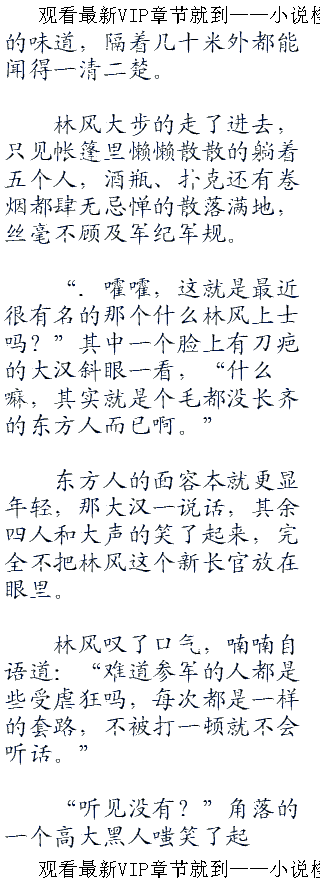 观看最新VIP章节就到——小说
的味道，隔着几十米外都能
闻得一清二楚。
林风大步的走了进去，
只见帐篷里懒懒散散的躺着
五个人，酒瓶、扑克还有卷
烟都肆无忌惮的散落满地，
丝毫不顾及军纪军规。
“．嚯嚯，这就是最近
很有名的那个什么林风上士
吗？”其中一个脸上有刀疤
的大汉斜眼一看，“什么
嘛，其实就是个毛都没长齐
的东方人而已啊。”
东方人的面容本就更显
年轻，那大汉一说话，其余
四人和大声的笑了起来，完
全不把林风这个新长官放在
眼里。
林风叹了口气，喃喃自
语道：“难道参军的人都是
些受虐狂吗，每次都是一样
的套路，不被打一顿就不会
听话。”
“听见没有？”角落的
一个高大黑人嗤笑了起
观看最新VIP章节就到——小说